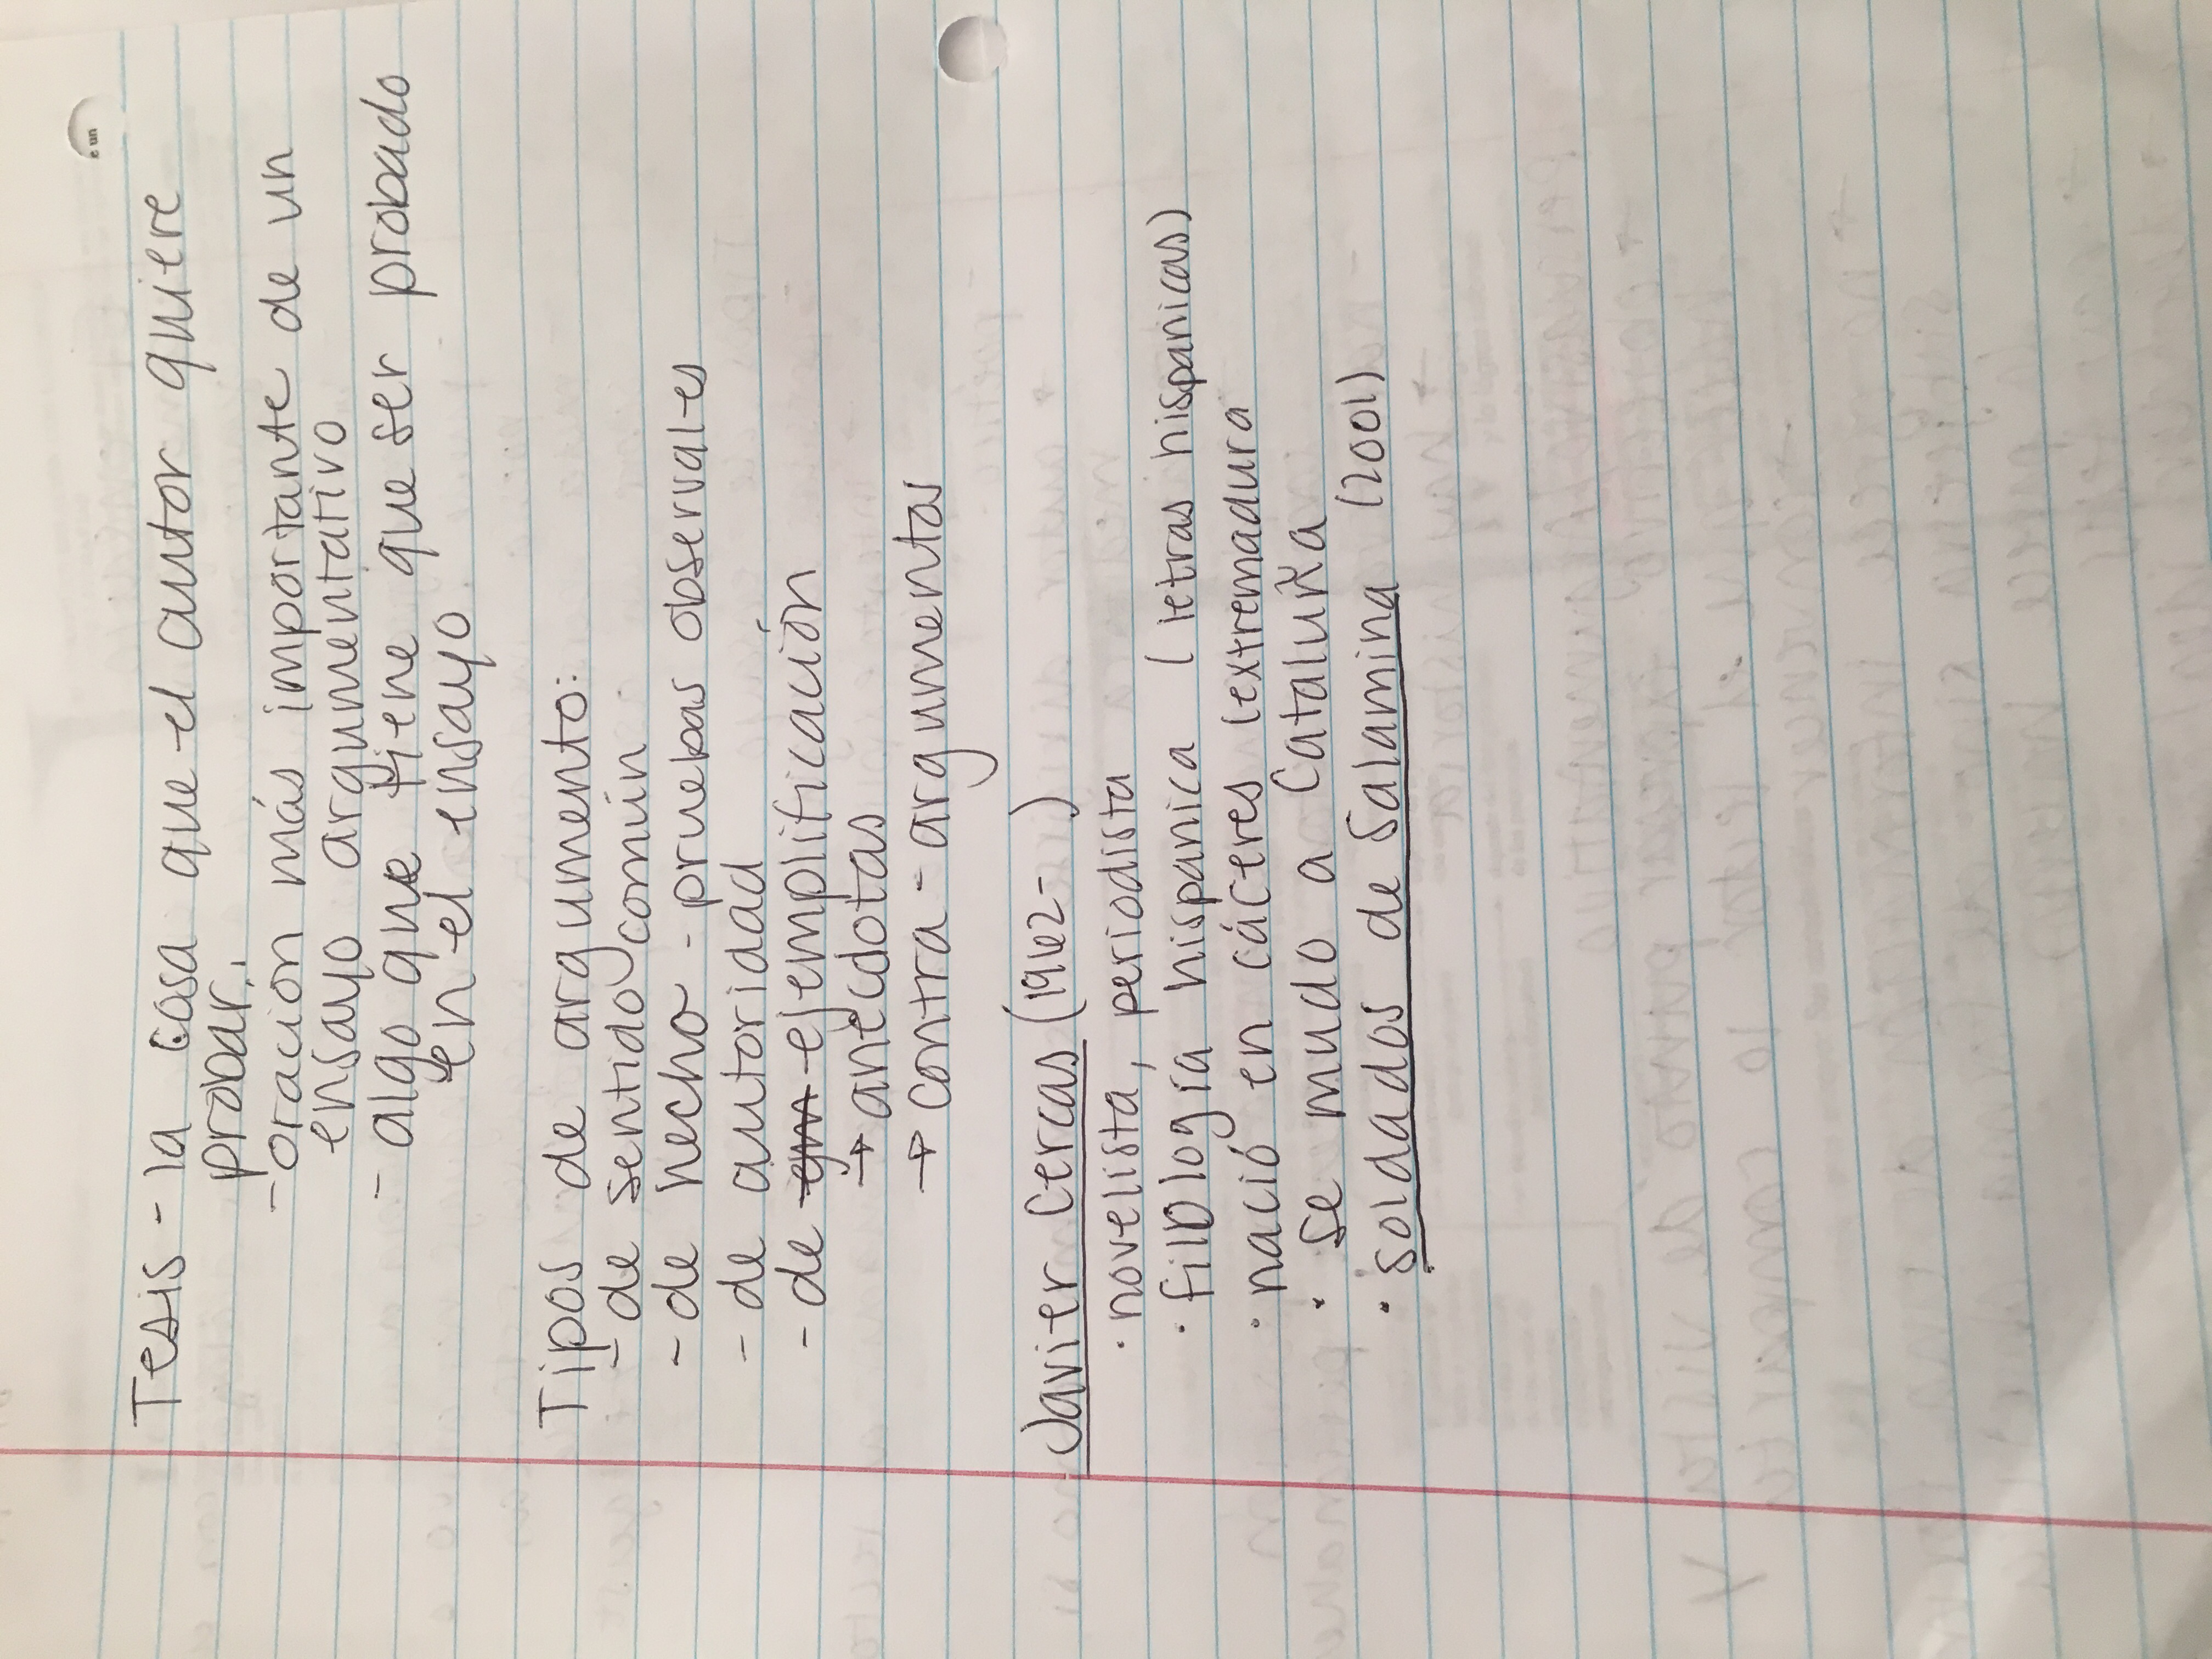 e un
Tesis - la cosa que el autor quiere
probar.
- oración más importante de un
ensayo argumentativo
- algo que tiene que ser probado
en el ensayo
Tipos de argumento:
- de sentido común
- de hecho - pruebas observales
- de autoridad
- de ejemplificación
→ anécdotas
→ contra-argumentos
Javier Cercas (1962- )
· novelista, periodista
· filología hispanica (letras hispanicas)
· nació en cáceres (extremadura
· se mudo a Cataluña
· soldados de Salamina (2001)